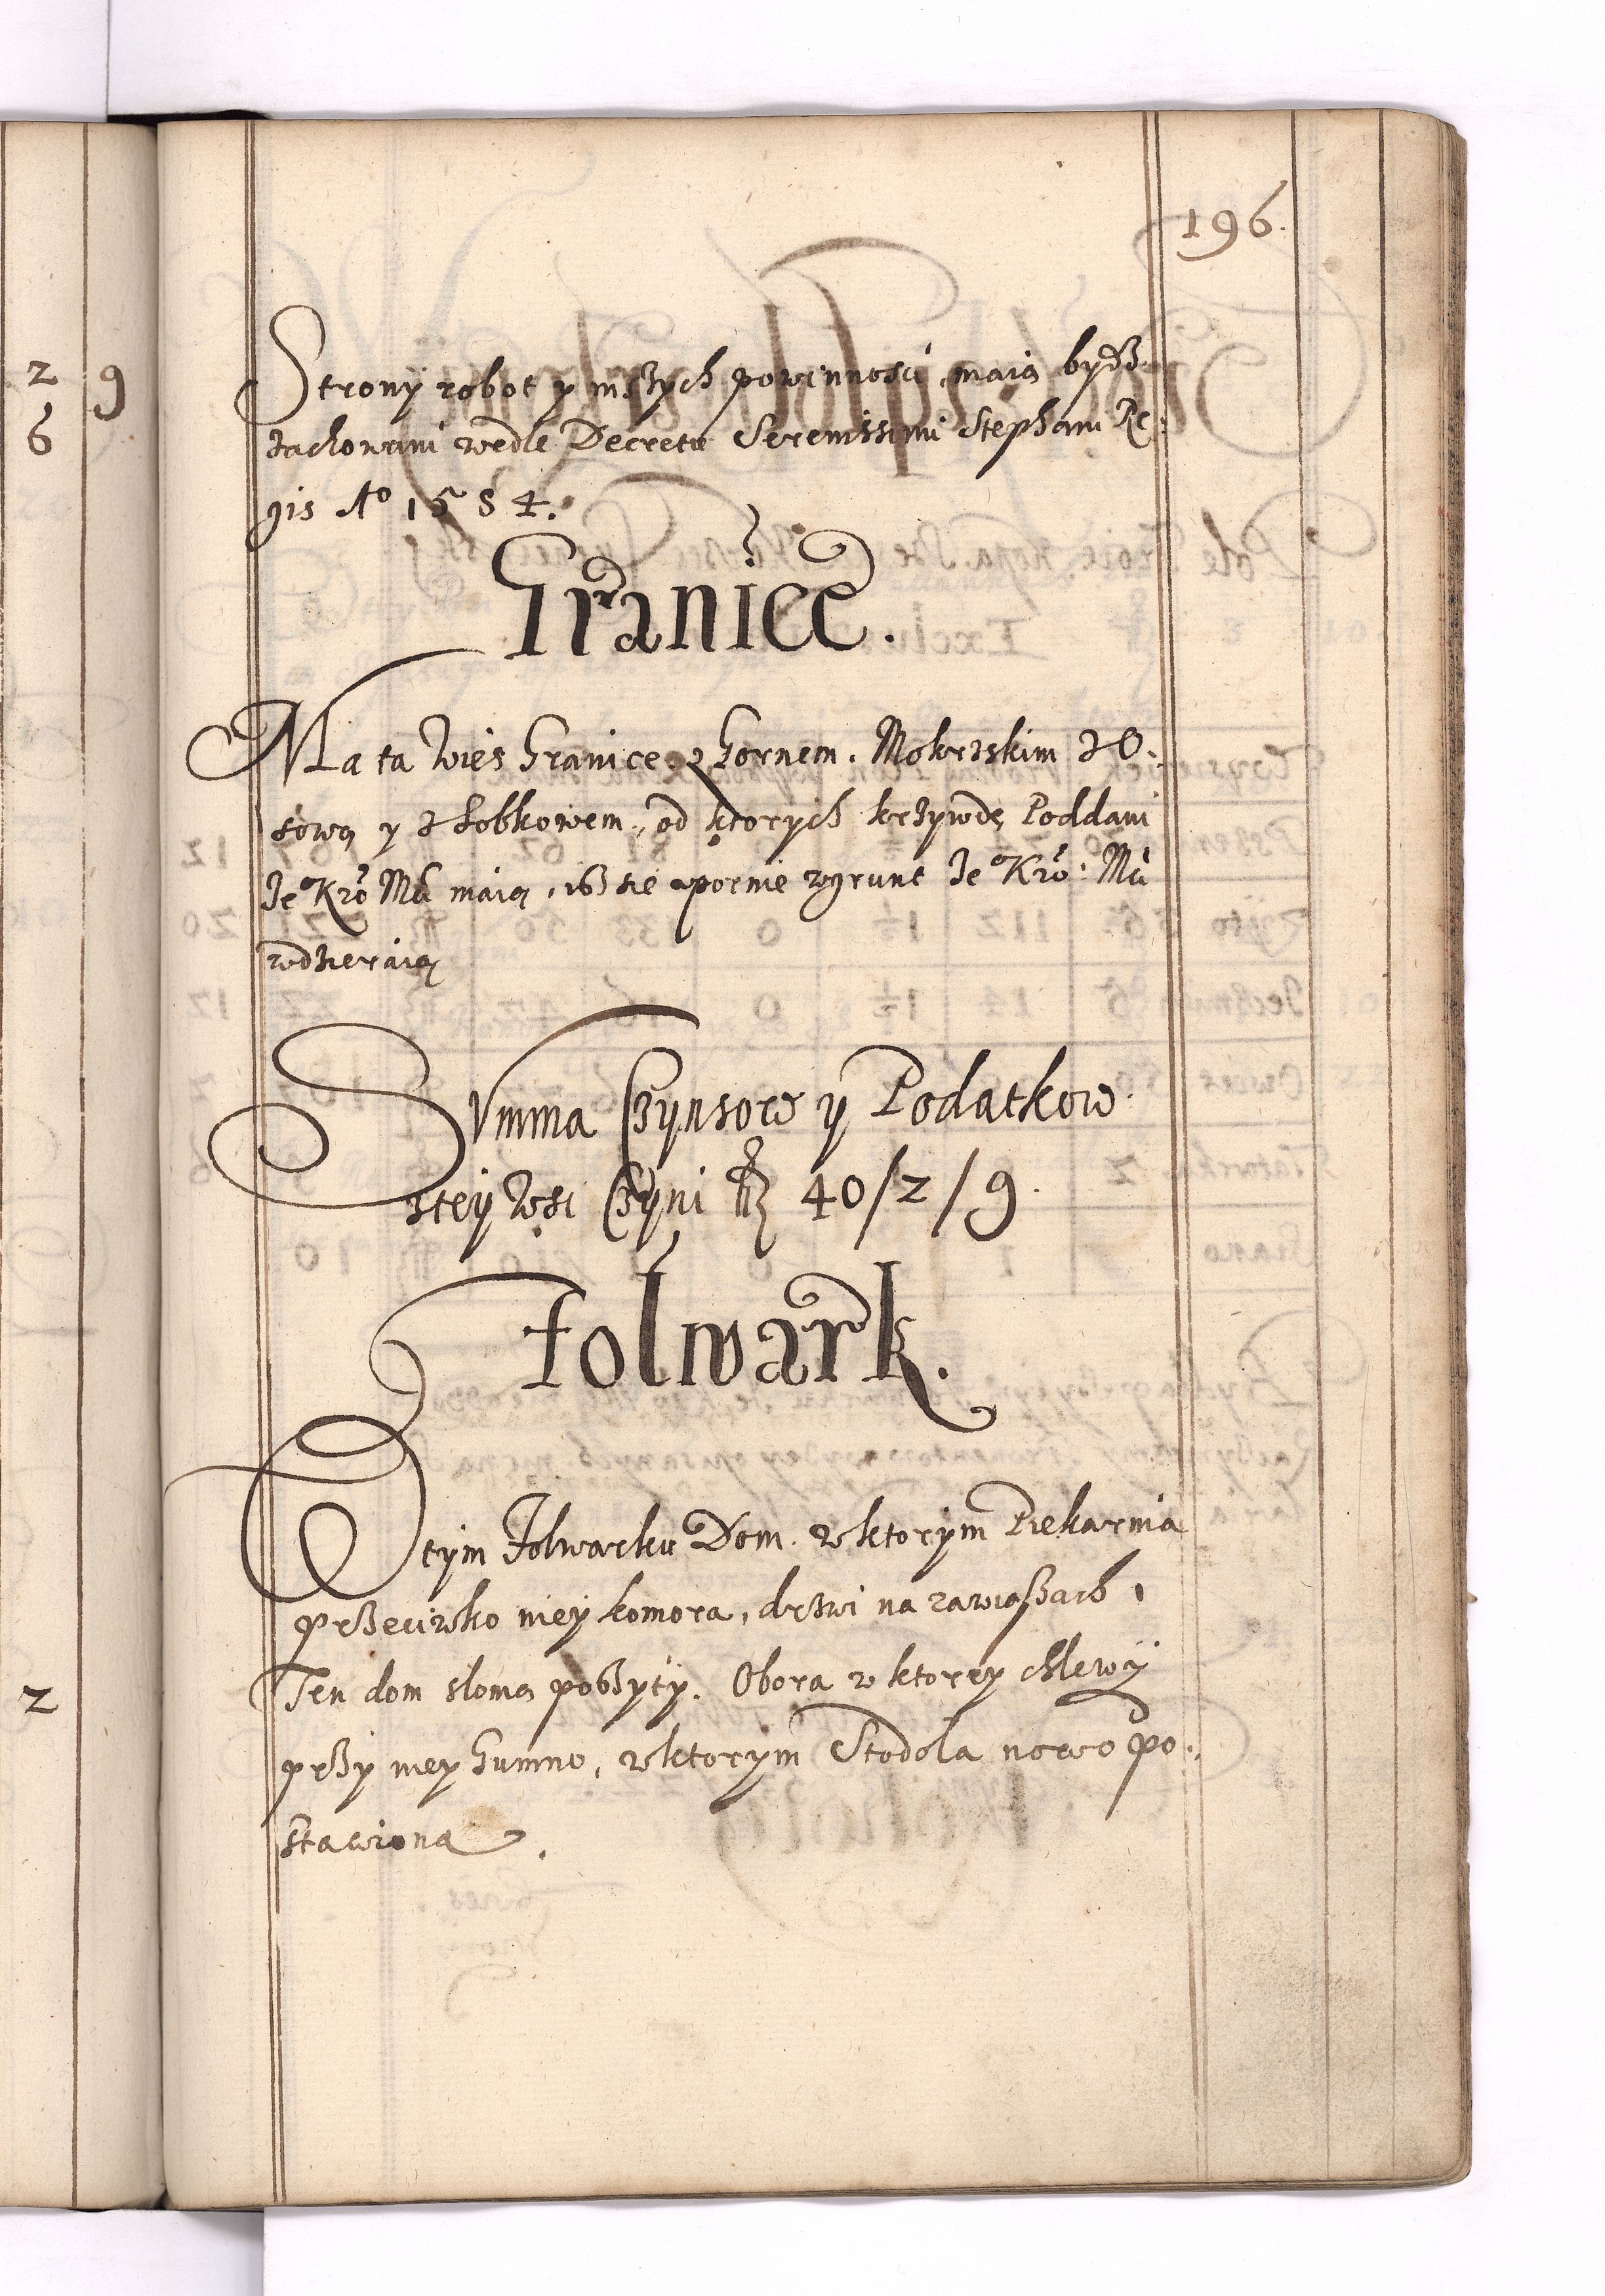 196.
Strony robot y inszych powinnosci, maią bydz
zachowani wedle Decretu Serenissimi Stephani Re:
gis Aº 1584.
Granice.
Ma ta Wies Granice z Gornem. Mokrzskim z O:
sową y z Łobkowem, od ktorych krzywdę Poddani
Je⁰ Kró Mci maią, isz sie upornie w grunt Je⁰ Kró: Mci
wdzieraią
Summa Czynszow y Podatkow
z tey Wsi Czyni fl 40/2/9.
Folwark.
W tym Folwarku Dom. w ktorym Piekarnia
przeciwko niey komora, drzwi na zawiaszach,
Ten dom słomą poszyty. Obora w ktorey chlewy
przy niey Gumno, w ktorym Stodola nowo po:
stawiona.
2 9
6
2